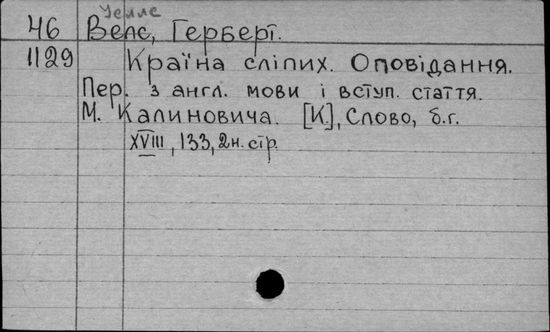 Уеллс
46 Велс, Герберт.
1129 Країна сліпих. Оповідання.
Пер. з англ. мови і вступ. стаття.
М. Калиновича. [К.], Слово, б.г.
XVIII, 133, 2н. стр.